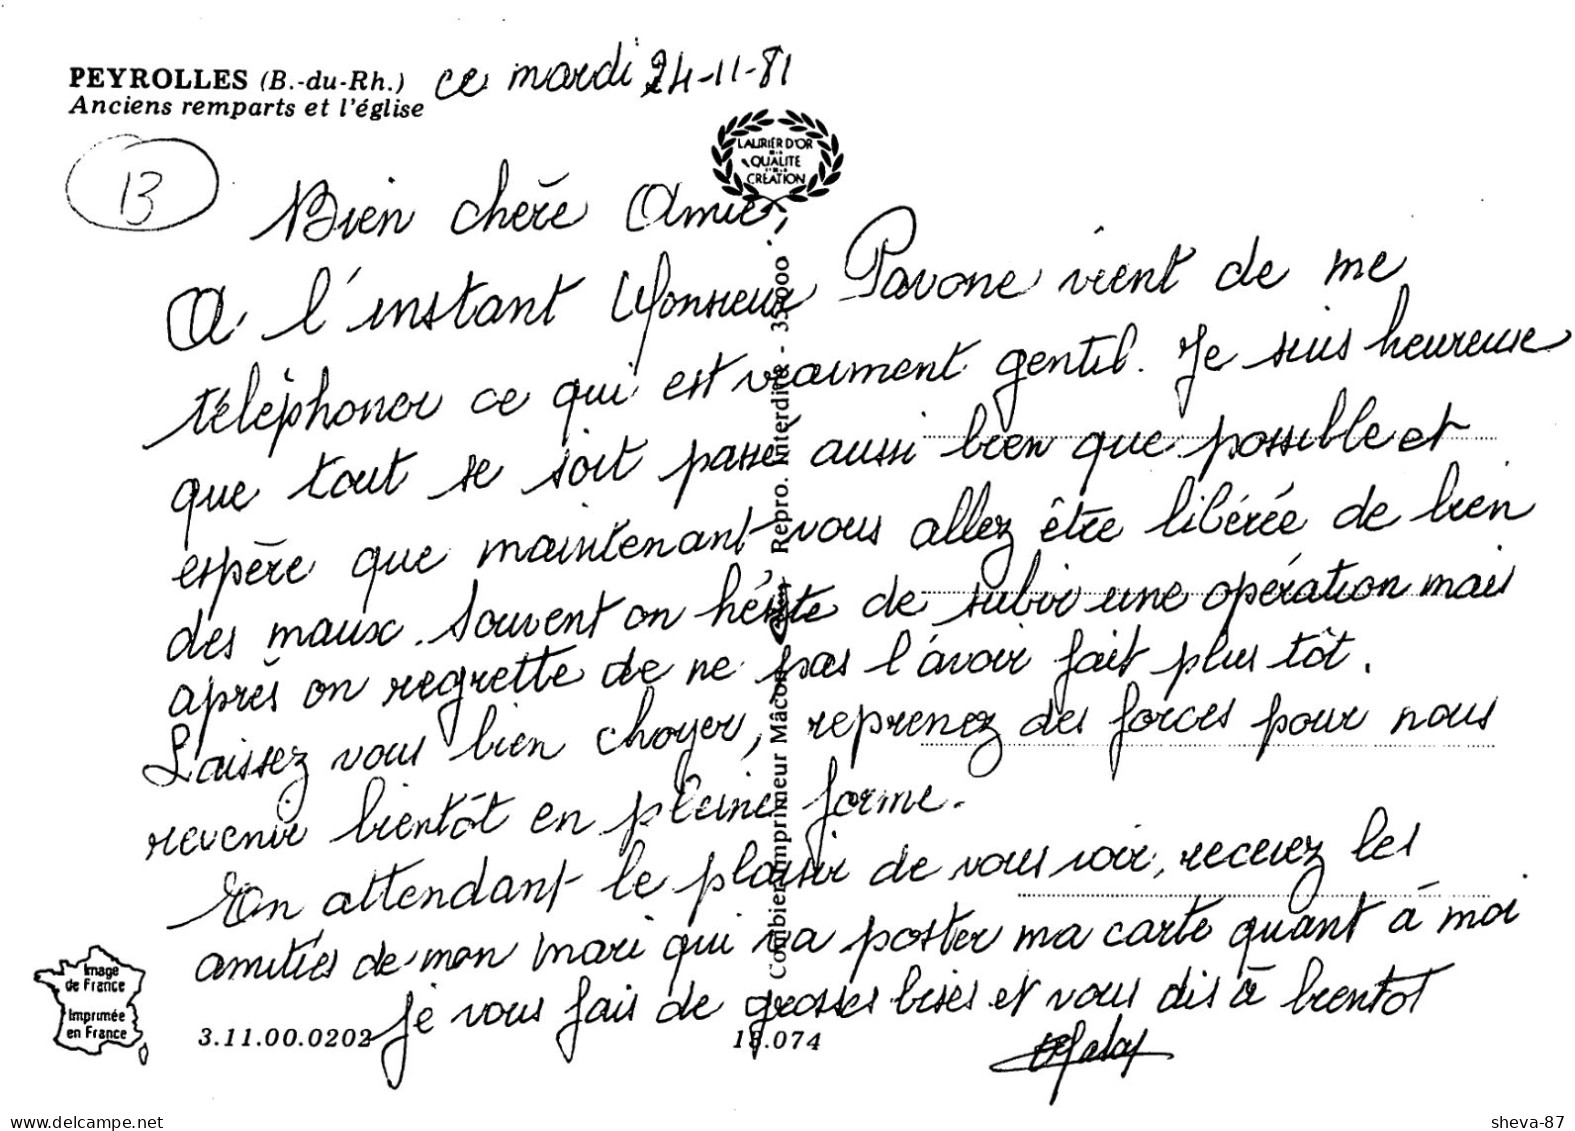 PEYROLLES (B.-du-Rh.) ce mardi 24-11-81
Anciens remparts et l'église
LAURIER D'OR
DE LA
QUALITÉ
ET DE LA
CRÉATION
13
Bien chère Amie,
A l'instant Monsieur Pavone vient de me
téléphoner ce qui est vraiment gentil. Je suis heureuse
que tout se soit passé aussi bien que possible et
espère que maintenant vous allez être libérée de bien
des maux. Souvent on hésite de subir une opération mais
après on regrette de ne pas l'avoir fait plus tôt.
Laissez vous bien choyer, reprenez des forces pour nous
revenir bientôt en pleine forme.
En attendant le plaisir de vous voir, recevez les
amitiés de mon mari qui va poster ma carte quant à moi
je vous fais de grosses bises et vous dis à bientot
Combier Imprimeur Mâcon Repro. Interdite - 35.000
Image
de France
Imprimée
en France
3.11.00.0202
13.074
www.delcampe.net
sheva-87